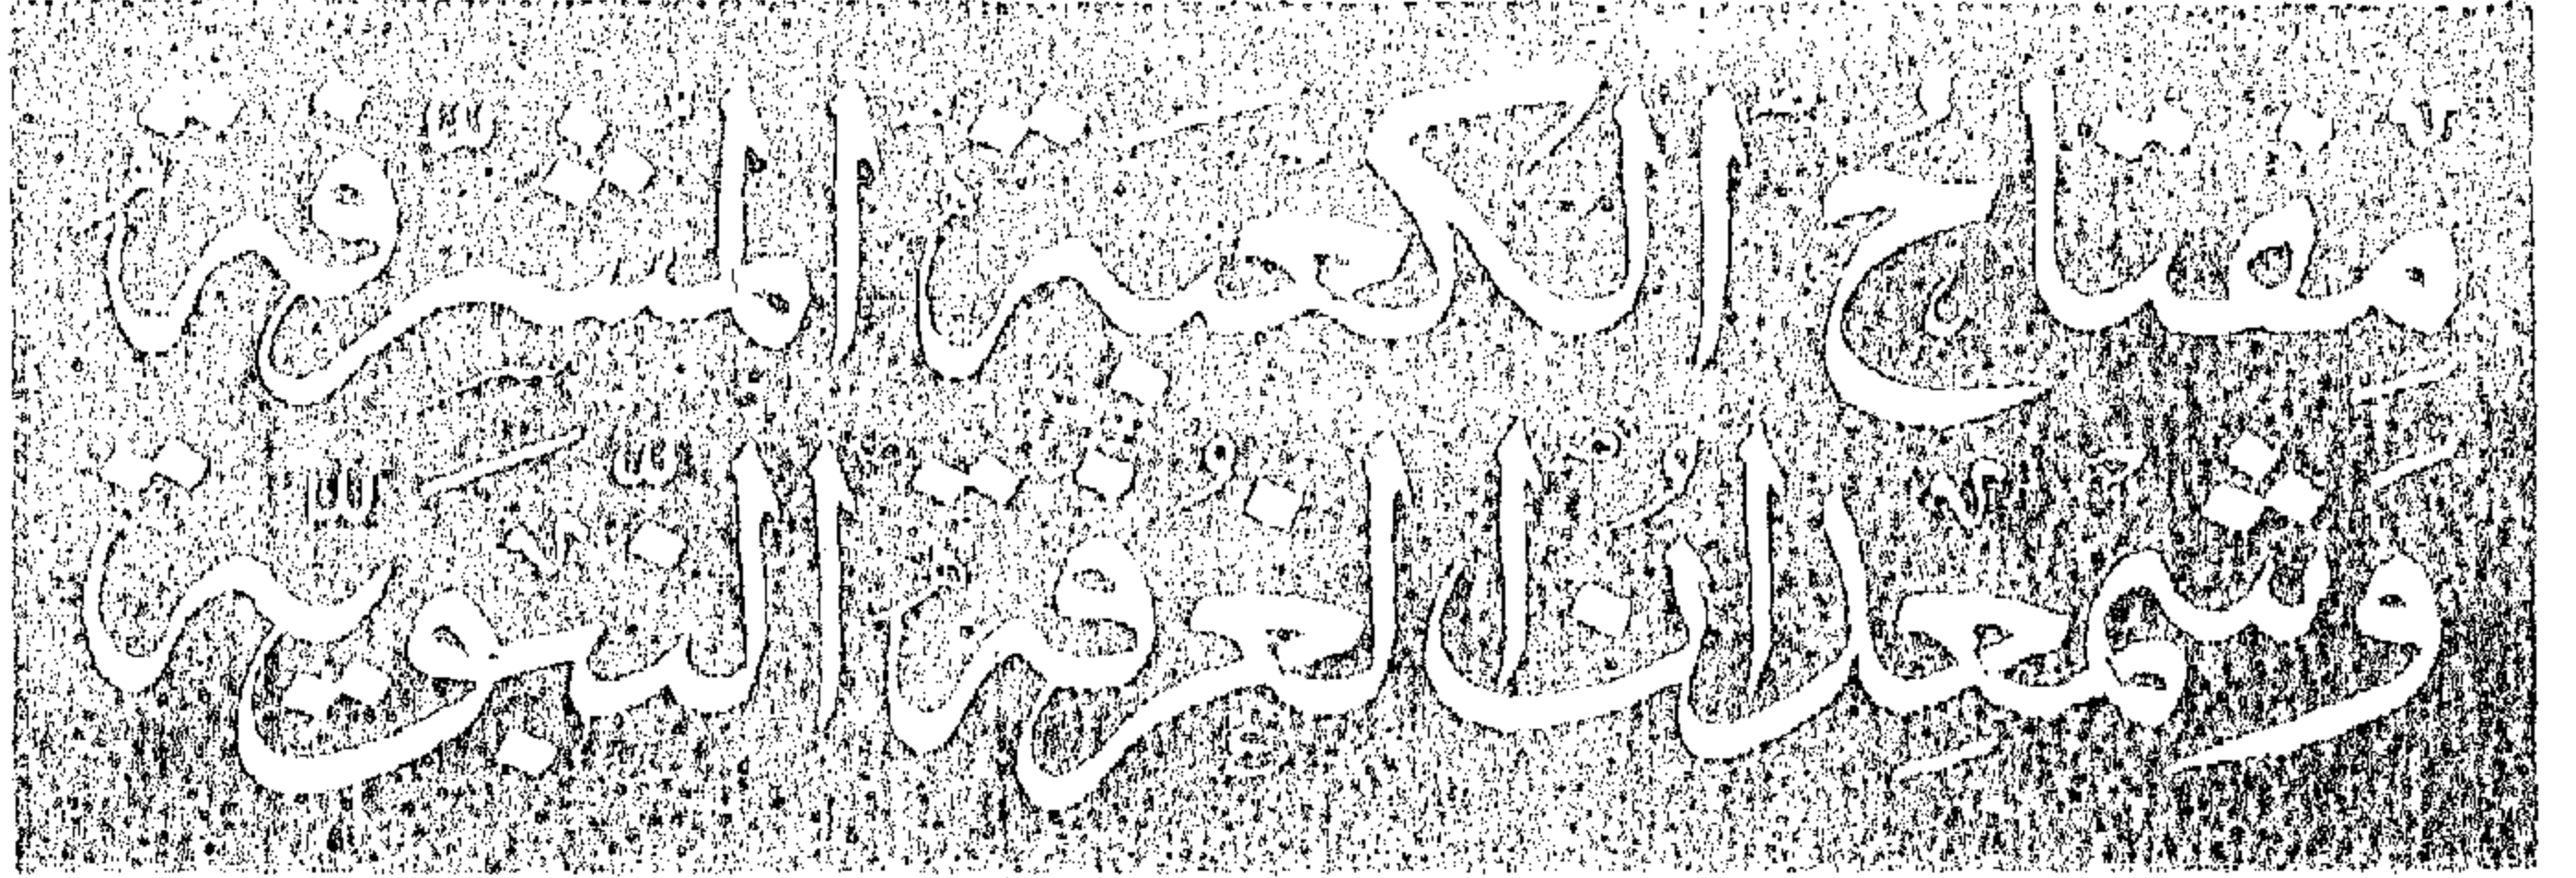 مفتاح الكعبة المشرفة
وشمعدان الغرفة النبوية